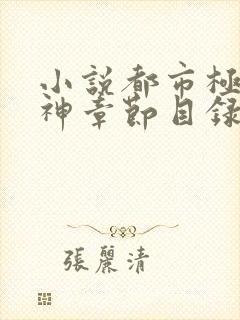 小說都市極
神章節目錄
張麗清